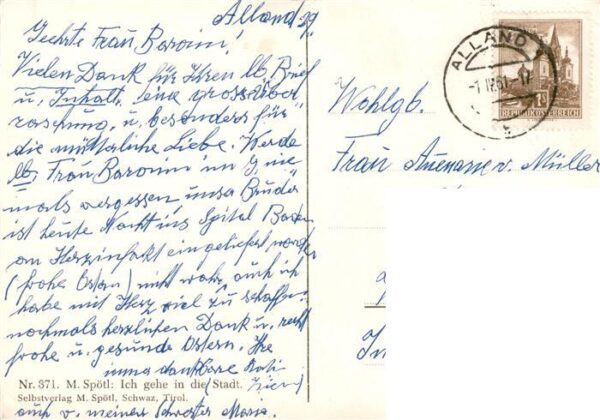 Alland, 29.
Geehrte Frau Baronin!
Vielen Dank für Ihren lb, Brief
u, Inhalt, eine grosse Über
raschung, u, besonders für
die mütterliche Liebe. Werde
lb, Frau Baronin im G, nie
mals vergessen, unser Bruder
ist heute Nacht ins Spital Baden
an Herzinfarkt eingeliefert worden
(frohe Ostern) nicht wahr, auch ich
habe mit Herz viel zu schaffen,
nochmals herzlichen Dank u, recht
frohe u, gesunde Ostern, Ihre
immer dankbare
Nr. 371. M. Spötl: Ich gehe in die Stadt.
Selbstverlag M. Spötl, Schwaz, Tirol.
auch v. meiner Schwester Maria.
ALLAND
REPUBLIK ÖSTERREICH
Wohlgb.
Frau v. Müller